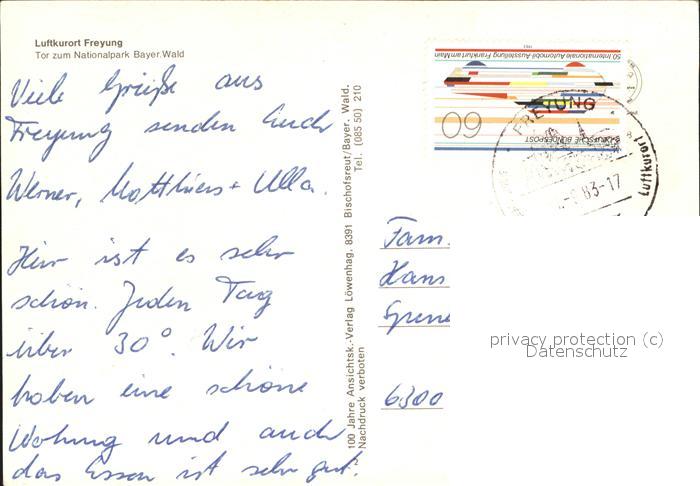 Luftkurort Freyung
Tor zum Nationalpark Bayer.Wald
Viele Grüße aus
Freyung senden Euch
Werner, Matthias + Ulla.
Hier ist es sehr
schön. Jeden Tag
über 30°. Wir
haben eine schöne
Wohnung und auch
das Essen ist sehr gut.
100 Jahre Ansichtsk.-Verlag Löwenhag, 8391 Bischofsreut/Bayer. Wald.
Nachdruck verboten
Tel. (085 50) 210
50. Internationale Automobil-Ausstellung Frankfurt am Main
1983
60
DEUTSCHE BUNDESPOST
FREYUNG
83-17
Luftkurort
Fam.
Hans
6300
privacy protection (c)
Datenschutz